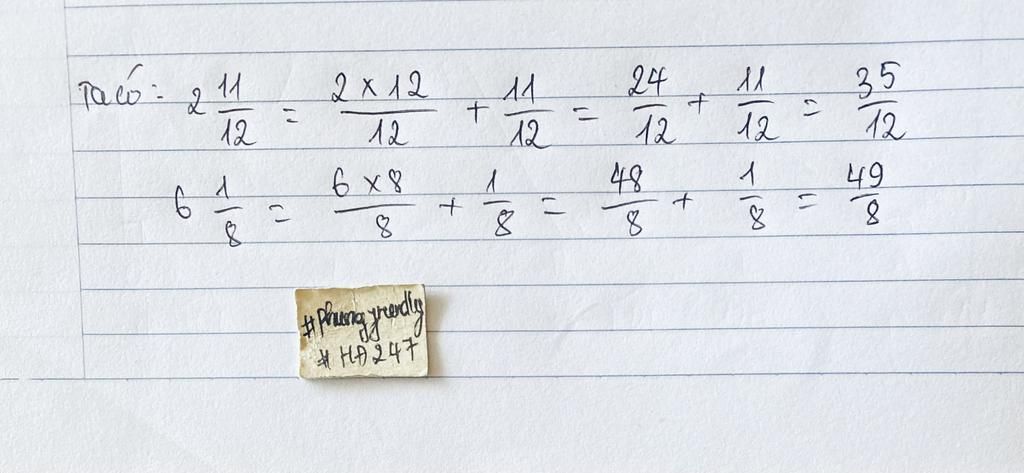 Ta có: 2 11/12 = 2 × 12/12 + 11/12 = 24/12 + 11/12 = 35/12
6 1/8 = 6 × 8/8 + 1/8 = 48/8 + 1/8 = 49/8
# HĐ247